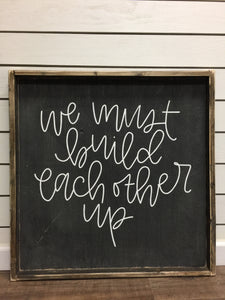 we must
build
each other
up